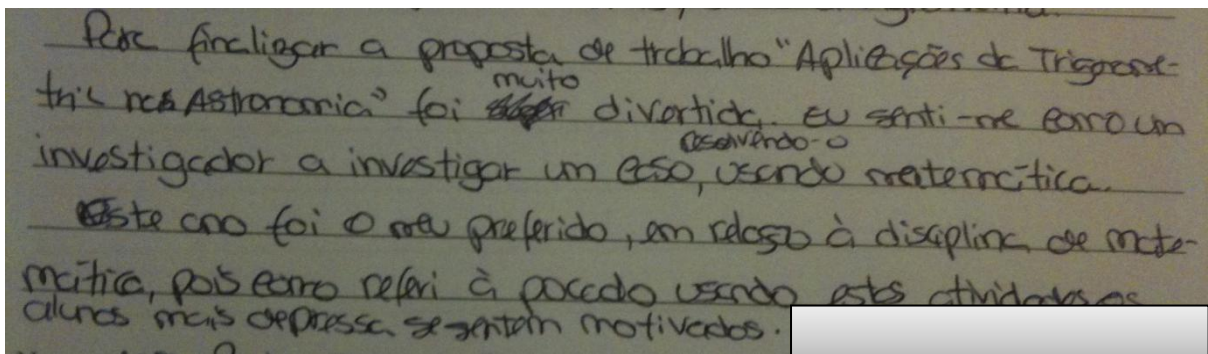 Para finalizar a proposta de trabalho "Aplicações da Trigonome-
tria na Astronomia" foi muito divertida. Eu senti-me como um
investigador a investigar um caso, resolvendo-o usando matemática.
Este ano foi o meu preferido, em relação à disciplina de mate-
mática, pois como referi à pocado usando estas atividades os
alunos mais depressa se sentem motivados.